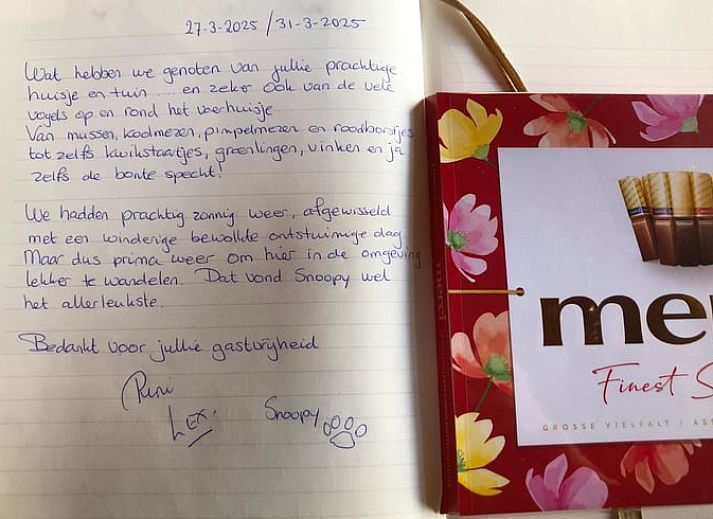 27-3-2025 / 31-3-2025
Wat hebben we genoten van jullie prachtige
huisje en tuin .... en zeker ook van de vele
vogels op en rond het voerhuisje.
Van mussen, koolmezen, pimpelmezen en roodborstjes
tot zelfs kwikstaartjes, groenlingen, vinken en ja
zelfs de bonte specht!
We hadden prachtig zonnig weer, afgewisseld
met een winderige bewolkte onstuimige dag
Maar dus prima weer om hier in de omgeving
lekker te wandelen. Dat vond Snoopy wel
het allerleukste.
Bedankt voor jullie gastvrijheid
Rini
Lex.
Snoopy
merci
me
Finest S
GROSSE VIELFALT / ASS